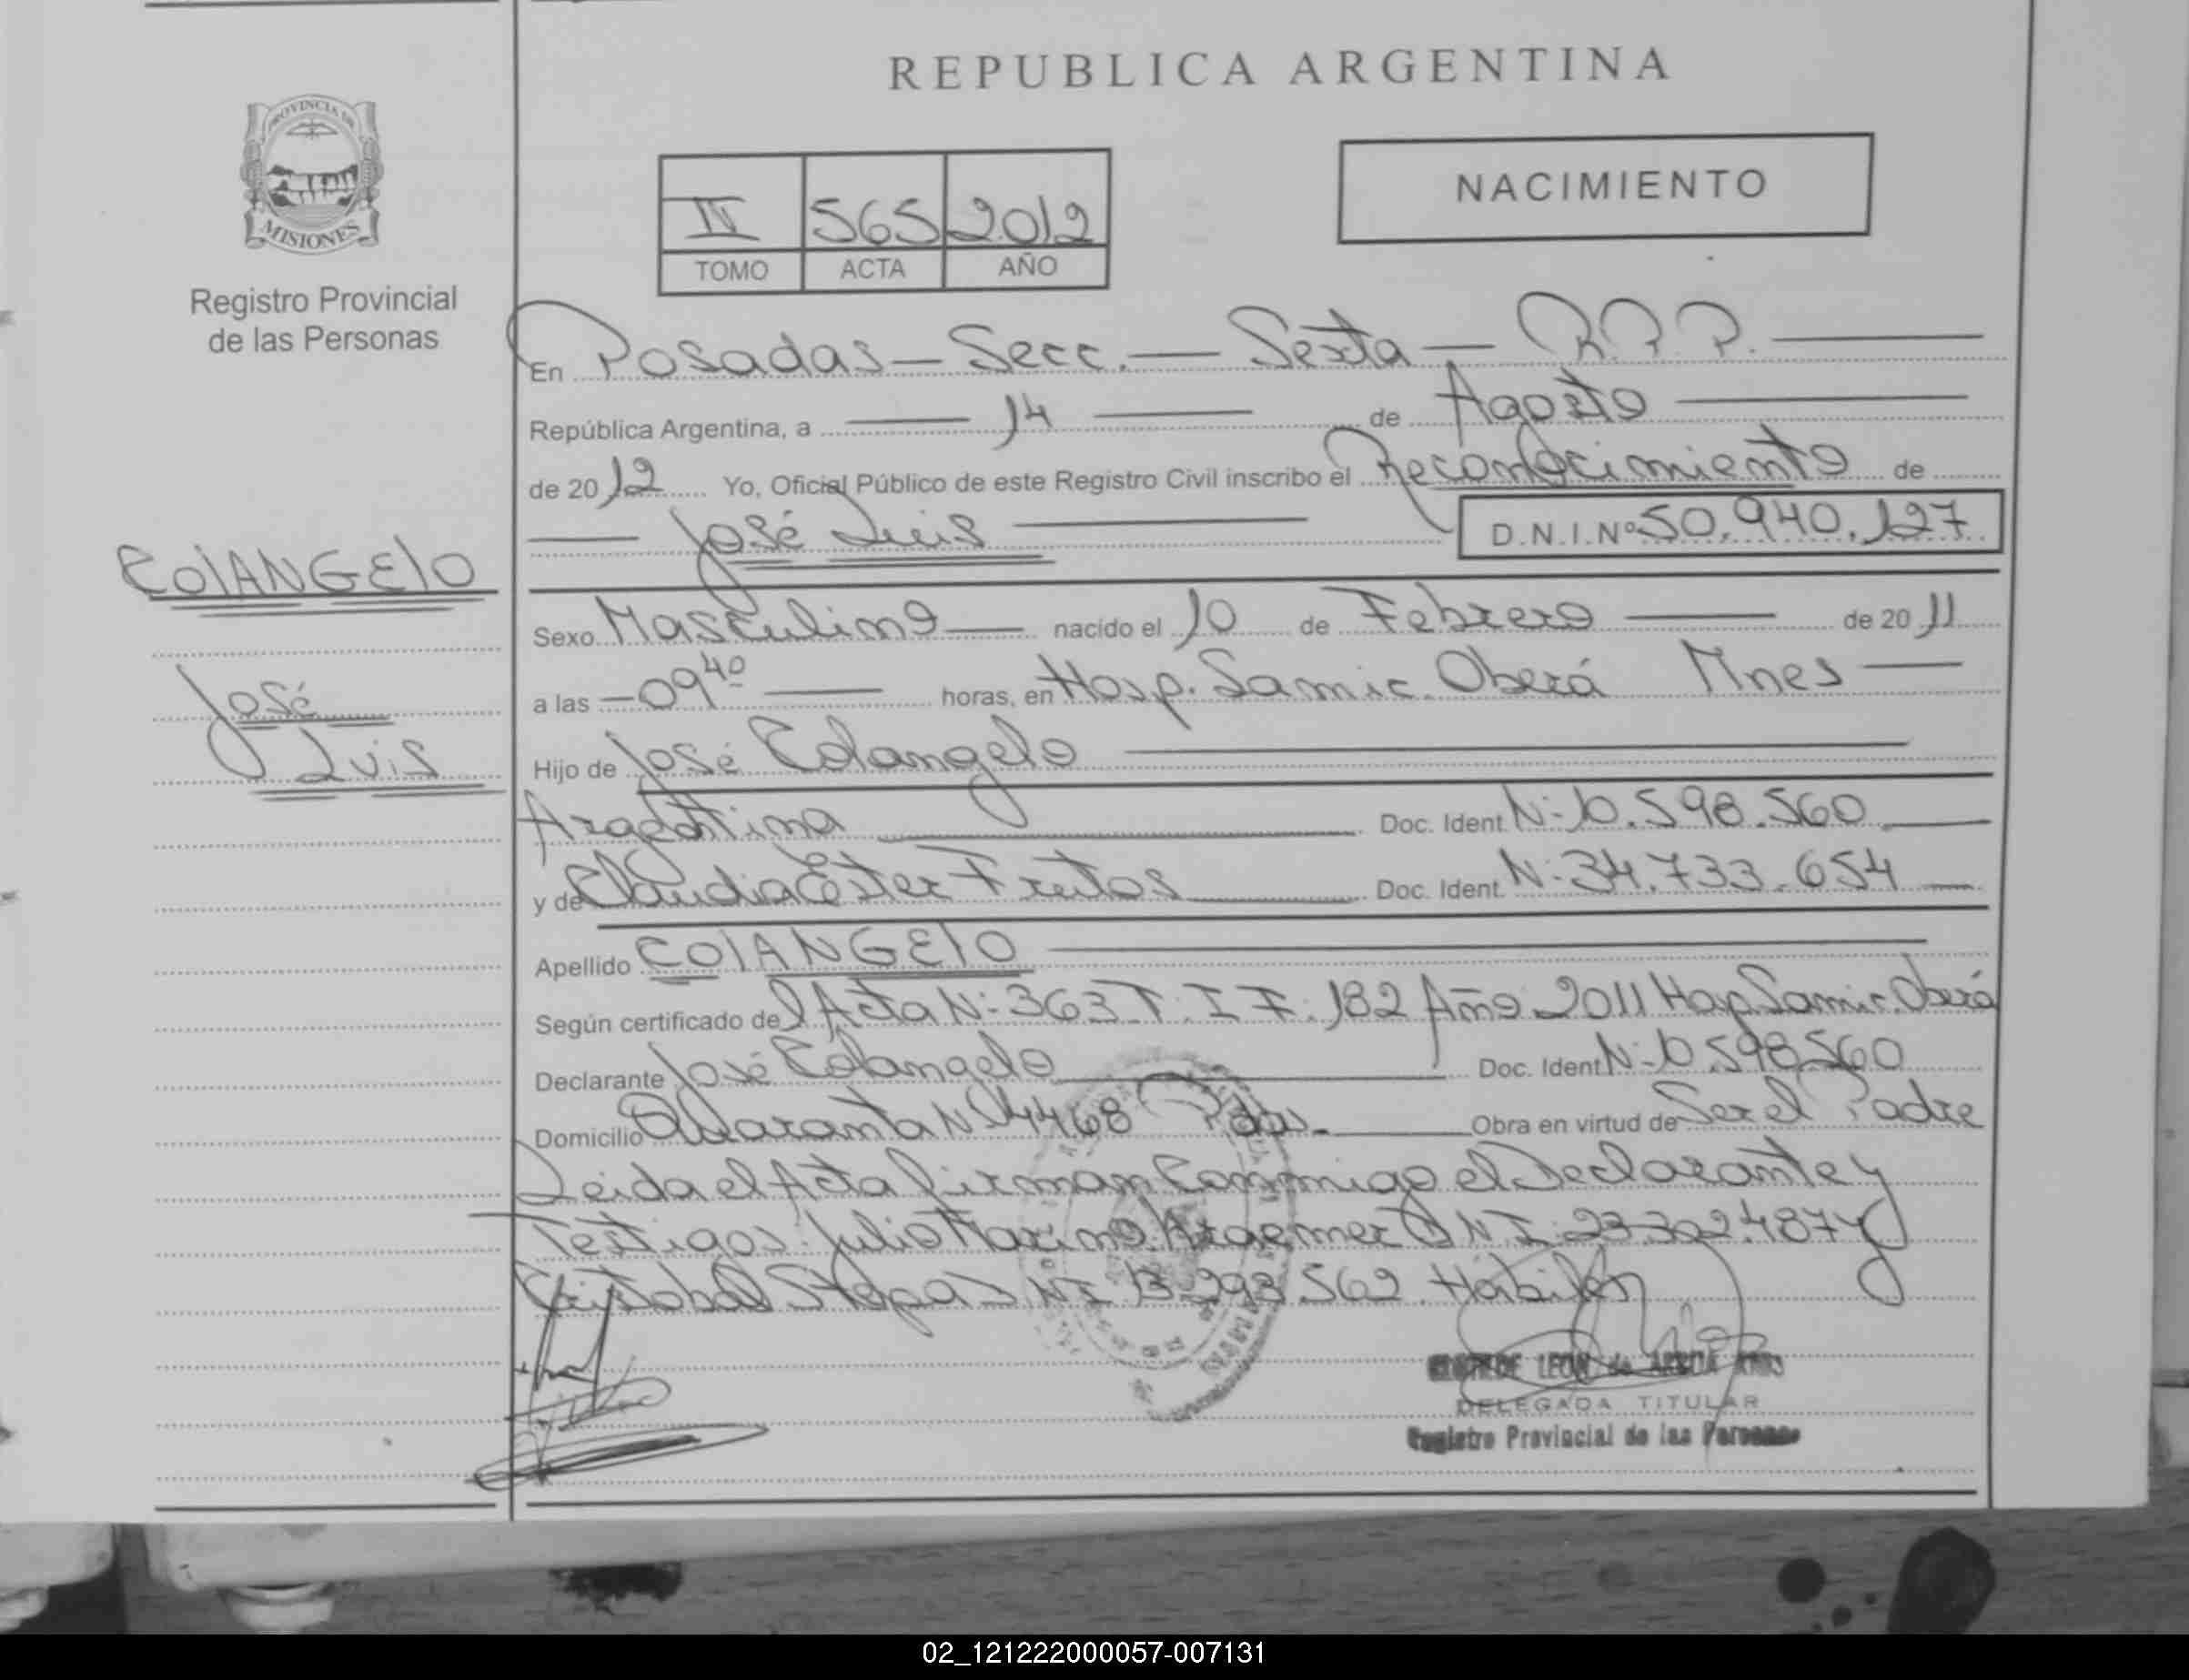 REPUBLICA ARGENTINA
PROVINCIA DE
MISIONES
Registro Provincial
de las Personas
IV 565 2012
TOMO ACTA AÑO
NACIMIENTO
En Posadas - Secc. - Sexta - R.P.P.
República Argentina, a 14 de Agosto
de 2012 Yo, Oficial Público de este Registro Civil inscribo el Reconocimiento de
José Luis D.N.I.Nº 50.940.127
COlANGElO
José
Luis
Sexo Masculino nacido el 10 de Febrero de 2011
a las 09 40 horas, en Hosp. Samic. Oberá Mnes
Hijo de José Colangelo
Argentina Doc. Ident. N: 10.598.560
y de Claudia Ester Fretos Doc. Ident. N: 34.733.654
Apellido COlANGElO
Según certificado del Acta N: 363 T: I F: 182 Año 2011 Hosp. Samic. Oberá
Declarante José Colangelo Doc. Ident. N: 10.598560
Domicilio N 4468 Pdas. Obra en virtud de Ser el Padre
Leida el Acta firman Conmigo el Declarante y
Testigos: Julio DNI: 23.302.487 y
Cristobal DNI 13.293.562. Hábiles
DE LEON de
DELEGADA TITULAR
Registro Provincial de las Personas
02_121222000057-007131